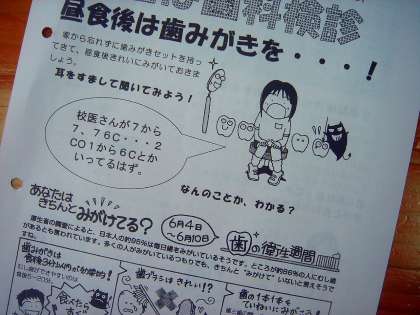 歯科検診
昼食後は歯みがきを・・・・!
家から忘れずに歯みがきセットを持っ
てきて、昼食後きれいにみがいておきま
しょう。
耳をすまして聞いてみよう!
校医さんが7から
7、76C・・・2
CO1から6Cとか
いってるはず。
なんのことか、わかる?
あなたは
きちんとみがけてる?
6月4日
～6月10日
歯の衛生週間
厚生省の調査によると、日本人の約96%は毎日歯をみがいているそうです。ところが約86%の人にむし歯
があるとも言われています。多くの人がみがいているつもりでも、きちんと"みがけて"いないと言えそうで
すね。
みがきは
歯ブラシはきれい!?
歯の1本1本を
ていねいにみがこう
食べたら
すぐ